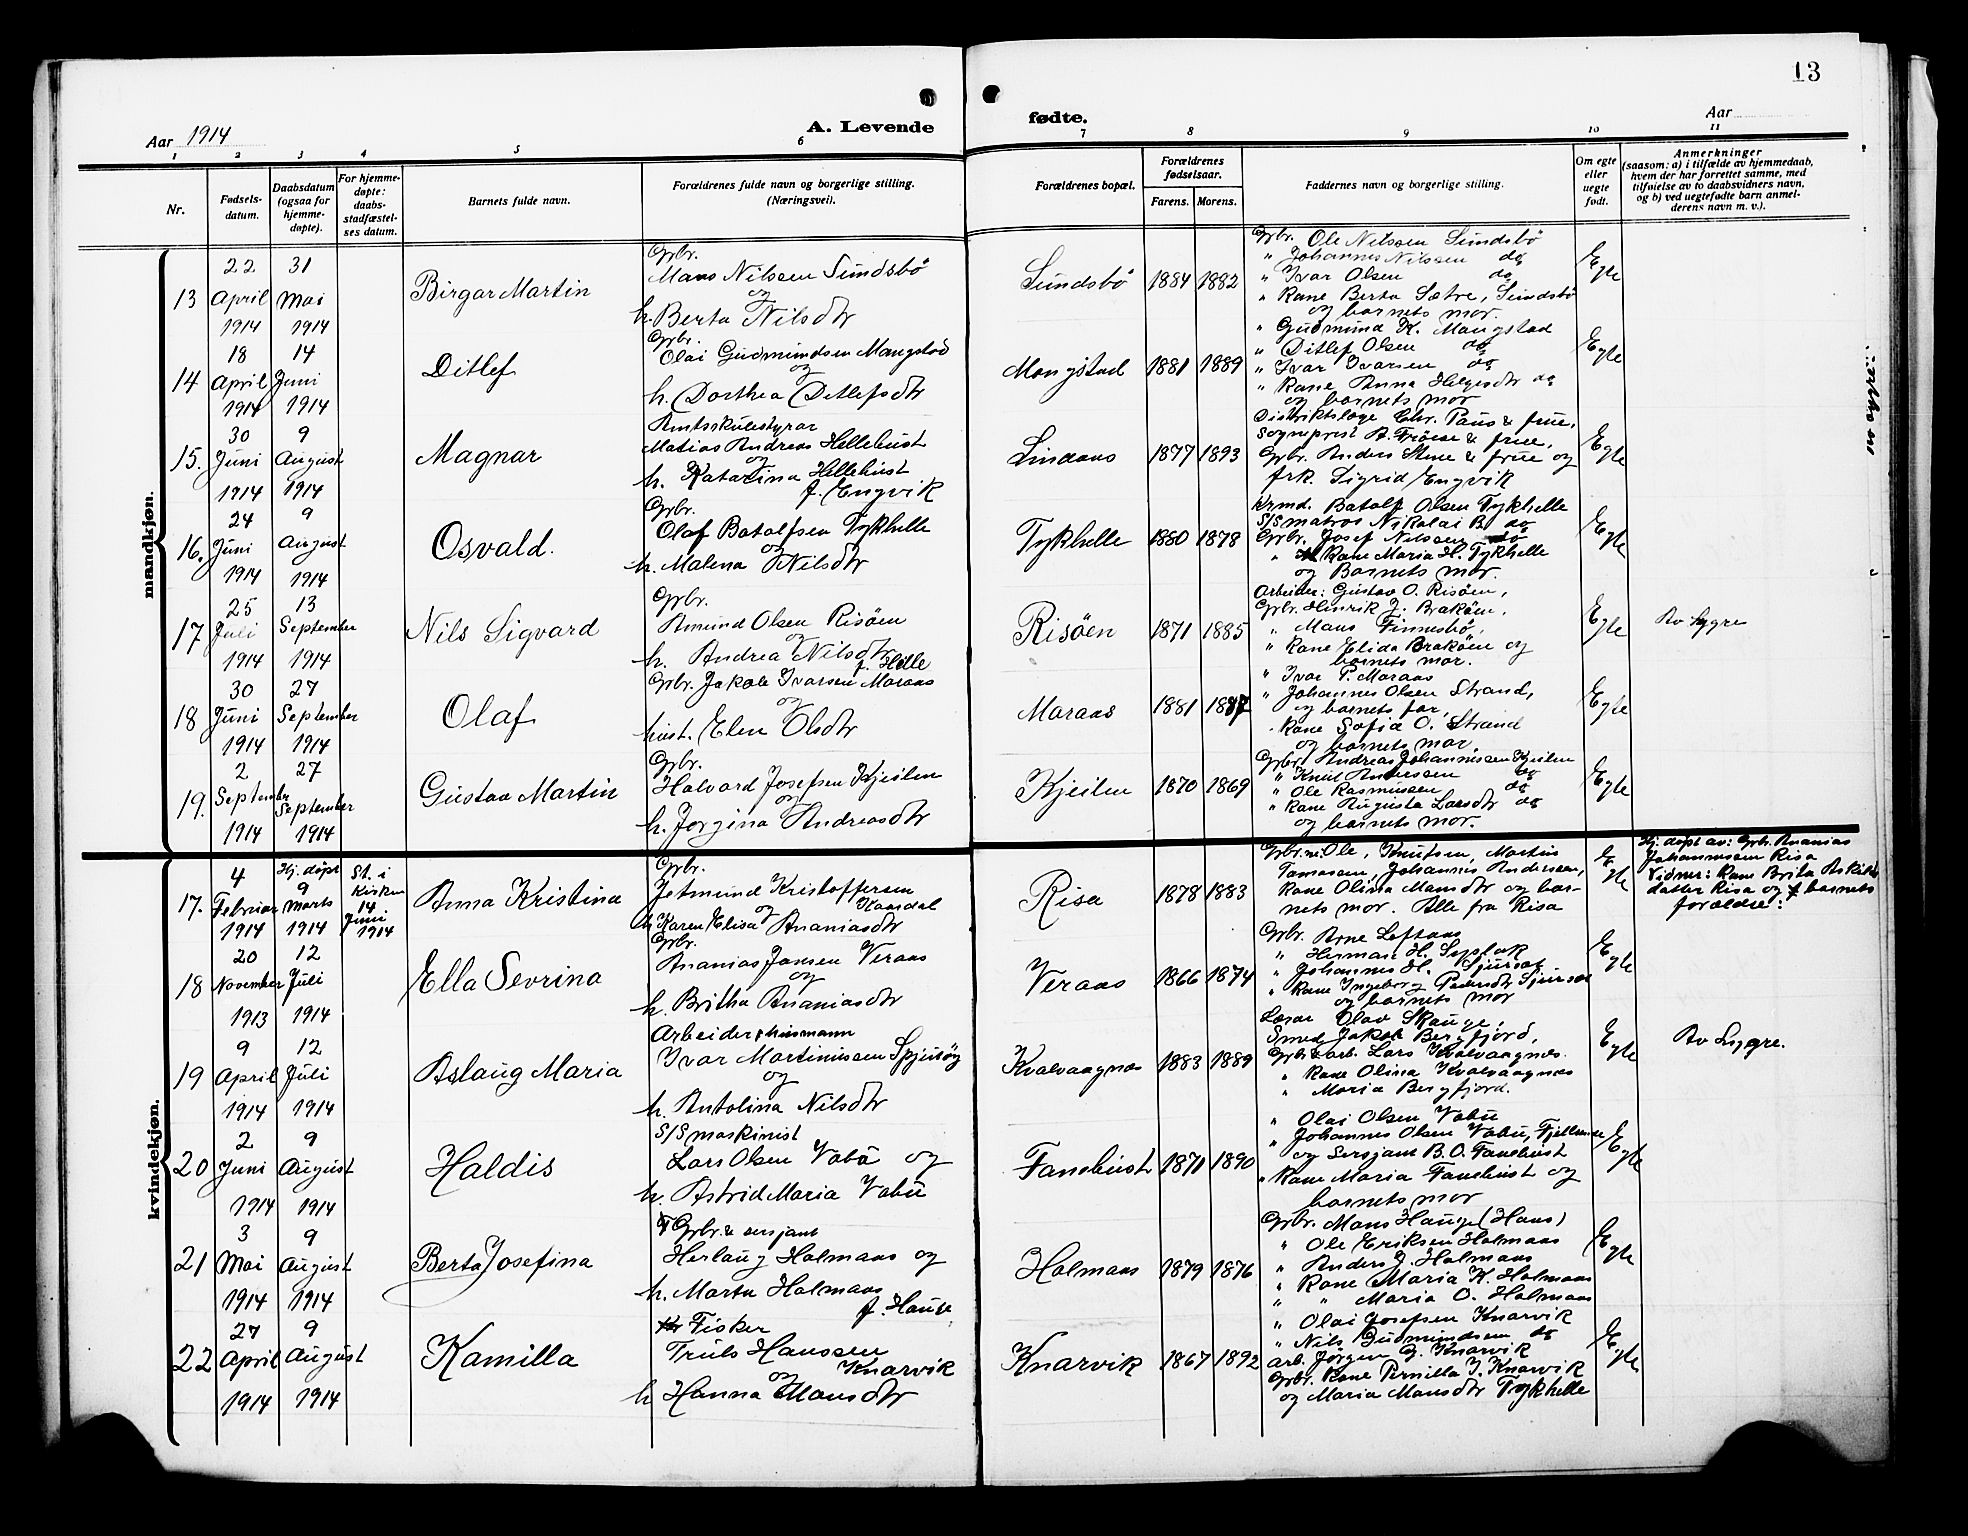 13
Aar 1914
A. Levende
fødte.
Aar
1 2 3 4 5 6 7 8 9 10 11
Nr.
Fødsels-
datum.
Daabsdatum
(ogsaa for
hjemme-
døpte).
For hjemme-
døpte:
daabs-
stadfæstel-
ses datum.
Barnets fulde navn.
Forældrenes fulde navn og borgerlige stilling.
(Næringsvei).
Forældrenes bopæl.
Forældrenes
fødselsaar.
Farens. Morens.
Faddernes navn og borgerlige stilling.
Om egte
eller
uegte
født.
Anmerkninger
(saasom: a) i tilfælde av hjemmedaab,
hvem der har forrettet samme, med
tilføielse av to daabsvidners navn,
og b) ved uegtefødte barn anmel-
derens navn m. v.).
mandkjøn.
13
22
April
1914
31
Mai
1914
Birgar Martin
Grbr.
Mans Nilssen Sundsbö
og
h. Berta Nilsdtr
Sundsbö
1884 1882
Grbr. Ole Nilssen Sundsbö
" Johannes Nilssen do
" Ivar Olsen do
" Kone Berta Sætre, Sundsbö
og barnets mor.
Egte
14
18
April
1914
14
Juni
1914
Ditlef
Grbr.
Olai Gudmundsen Mangstad
og
h. Dorthea Ditlefsdtr
Mongstad
1881 1889
" Gudmund K. Mangstad
" Ditlef Olsen do
" Ivar Ivarsen do
" Kone Anna Helgesdtr do
og barnets mor
Egte
15.
30
Juni
1914
9
August
1914
Magnar
Amtsskulestyrar
Matias Andreas Hellehust
og
h. Katarina Hellehust
f. Engvik
Lindaas
1877 1893
Distriktslæge Chr. Paus & frue,
Sogneprest A. Fröise & frue,
Grbr. Anders Stene & frue og
frk. Sigrid Engvik
Egte
16.
24
Juni
1914
9
August
1914
Osvald.
Grbr.
Olaf Batalfsen Tykhelle
og
h. Malena Nilsdtr
Tykhelle
1880 1878
Krmd. Batalf Olsen Tykhelle
S/S matros Nikolai B. do
Grbr. Josef Nilssen do
" Kone Maria H. Tykhelle
og Barnets mor.
Egte
17
25
Juli
1914
13
September
1914
Nils Sigvard
Grbr.
Amund Olsen Risöen
og
h. Andrea Nilsdtr
f. Helle
Risöen
1871 1885
Arbeider: Gustav O. Risöen,
Grbr. Hinrik J. Braköen,
" Mans Finnesbö,
" Kone Elida Braköen og
barnets mor.
Egte
Av Lygre
18
30
Juni
1914
27
September
1914
Olaf
Grbr. Jakob Ivarsen Maraas
og
hust. Elen Olsdtr
Maraas
1881 1887
" Ivar P. Maraas
" Johannes Olsen Strand,
og barnets far,
. Kone Sofia O. Strand
og barnets mor.
Egte
19.
2
September
1914
27
September
1914
Gustav Martin
Grbr.
Halvard Josefsen Kjeilen
og
h. Jorgina Andreasdtr
Kjeilen
1870 1869
Grbr. Andreas Johannessen Kjeilen
" Knut Andersen do
" Ole Rasmussen do
" Kone Augusta Larsdtr do
og barnets mor.
Egte
kvindekjøn.
17.
4
Februar
1914
Hj. döpt
9
Marts
1914
St. i
Kirken
14
Juni
1914
Anna Kristina
Grbr.
Jetmund Kristoffersen
Haasdal
og
h Karen Elisa Ananiasdtr
Risa
1878 1883
Grbr.ne: Ole, Knutsen, Martin
Tomassen, Johannes Andersen,
Kone Olina Mansdtr og bar-
nets mor. Alle fra Risa
Egte
Hj. döpt av: Grbr. Ananias
Johannessen Risa
Vidner: Kone Brita Askilds-
datter Risa og barnets
forældre:
18
20
November
1913
12
Juli
1914
Ella Sevrina
Grbr.
Ananias Jansen Veraas
og
h. Britha Ananiasdtr
Veraas
1866 1874
Grbr. Arne Leftaas
" Herman H. Syslak
" Johannes H. Sjursæt
" Kone Ingeborg Pedersdtr Sjursæt
og barnets mor
Egte
19
9
April
1914
12
Juli
1914
Aslaug Maria
Arbeider & husmann
Ivar Martinussen Spjutöy
og
h. Antolina Nilsdtr
Kvalvaagnæs
1883 1889
Lærar Olav Skauge,
Smed Jakob Bergfjord,
Grbr & arb. Lars Kvalvaagnæs.
" Kone Olina Kvalvaagnæs
" Maria Bergfjord.
Egte
Av Lygre.
20
2
Juni
1914
9
August
1914
Haldis
S/S maskinist
Lars Olsen Vabö og
h. Astrid Maria Vabö
Fanebust
1871 1890
" Olai Olsen Vabö
" Johannes Olsen Vabö, Fjellsende
og Sersjant B. O. Fanebust
" Kone Maria Fanebust og
barnets mor
Egte
21
3
Mai
1914
9
August
1914
Berta Josefina
Grbr & sersjant
Herlaug Holmaas og
h. Marta Holmaas
f. Hauge
Holmaas
1879 1876
Grbr. Mons Hauge (Haus)
" Ole Eriksen Holmaas
" Anders J. Holmaas
" Kone Maria K. Holmaas
" " Maria O. Holmaas
Egte
22
27
April
1914
9
August
1914
Kamilla
Fisker
Truls Hanssen
Knarvik
og
h Hanna Mansdtr
Knarvik
1867 1892
" Olai Josefsen Knarvik
" Nils Gudmundsen do
arb. Jörgen G. Knarvik
Grbr. Kone Pernilla I. Knarvik
og Maria Mansdtr Tykhelle
Egte